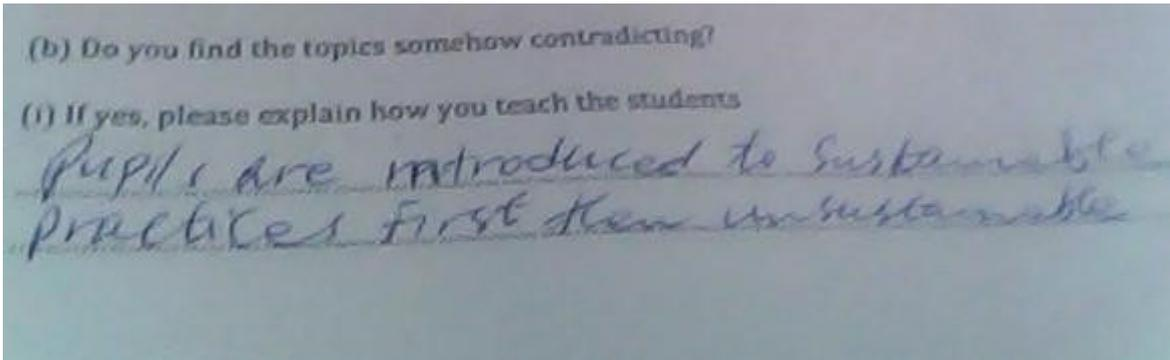 (b) Do you find the topics somehow contradicting?
(i) If yes, please explain how you teach the students
Pupils are introduced to Sustainable
practices first then unsustainable